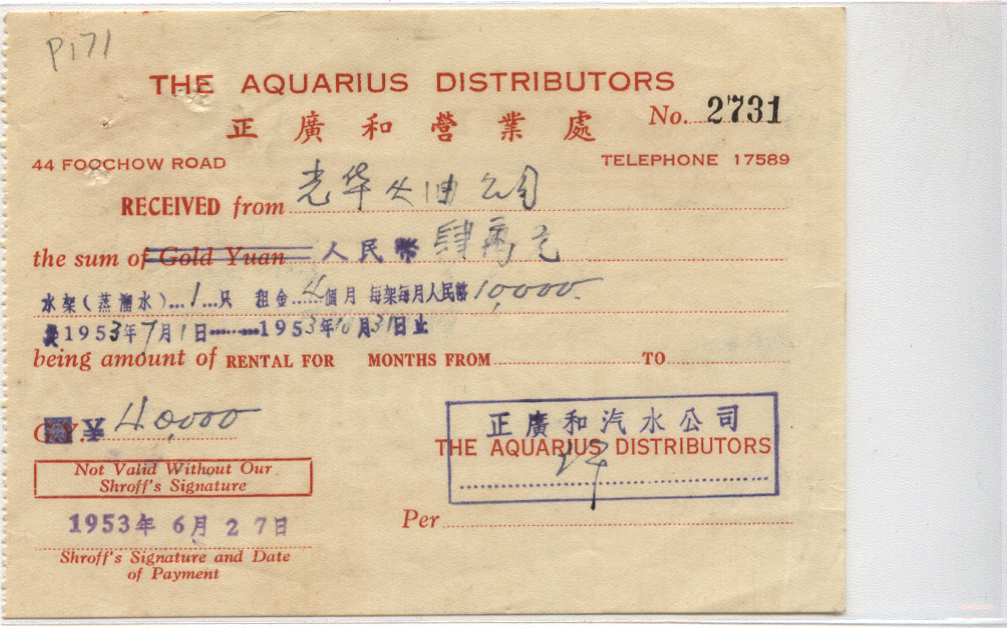 P171
THE AQUARIUS DISTRIBUTORS
正廣和營業處
No. 2731
44 FOOCHOW ROAD
TELEPHONE 17589
RECEIVED from 光华火油公司
the sum of Gold Yuan 人民幣 肆萬元
水架(蒸溜水)...1...只 租金...4個月 每架每月人民幣 10,000
1953年7月1日………1953年10月31日止
being amount of RENTAL FOR MONTHS FROM TO
G.Y. ¥ 40,000
正廣和汽水公司
THE AQUARIUS DISTRIBUTORS
Not Valid Without Our
Shroff's Signature
1953年6月27日
Per
Shroff's Signature and Date
of Payment